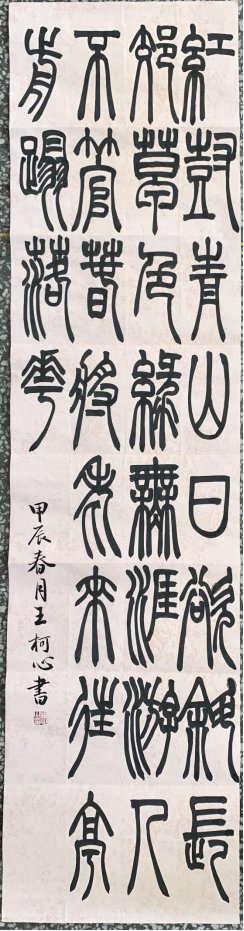 紅樹青山日欲斜長
郊草色綠無涯游人
不管春將老來往亭
前蹋落華
甲辰春月王柯心書